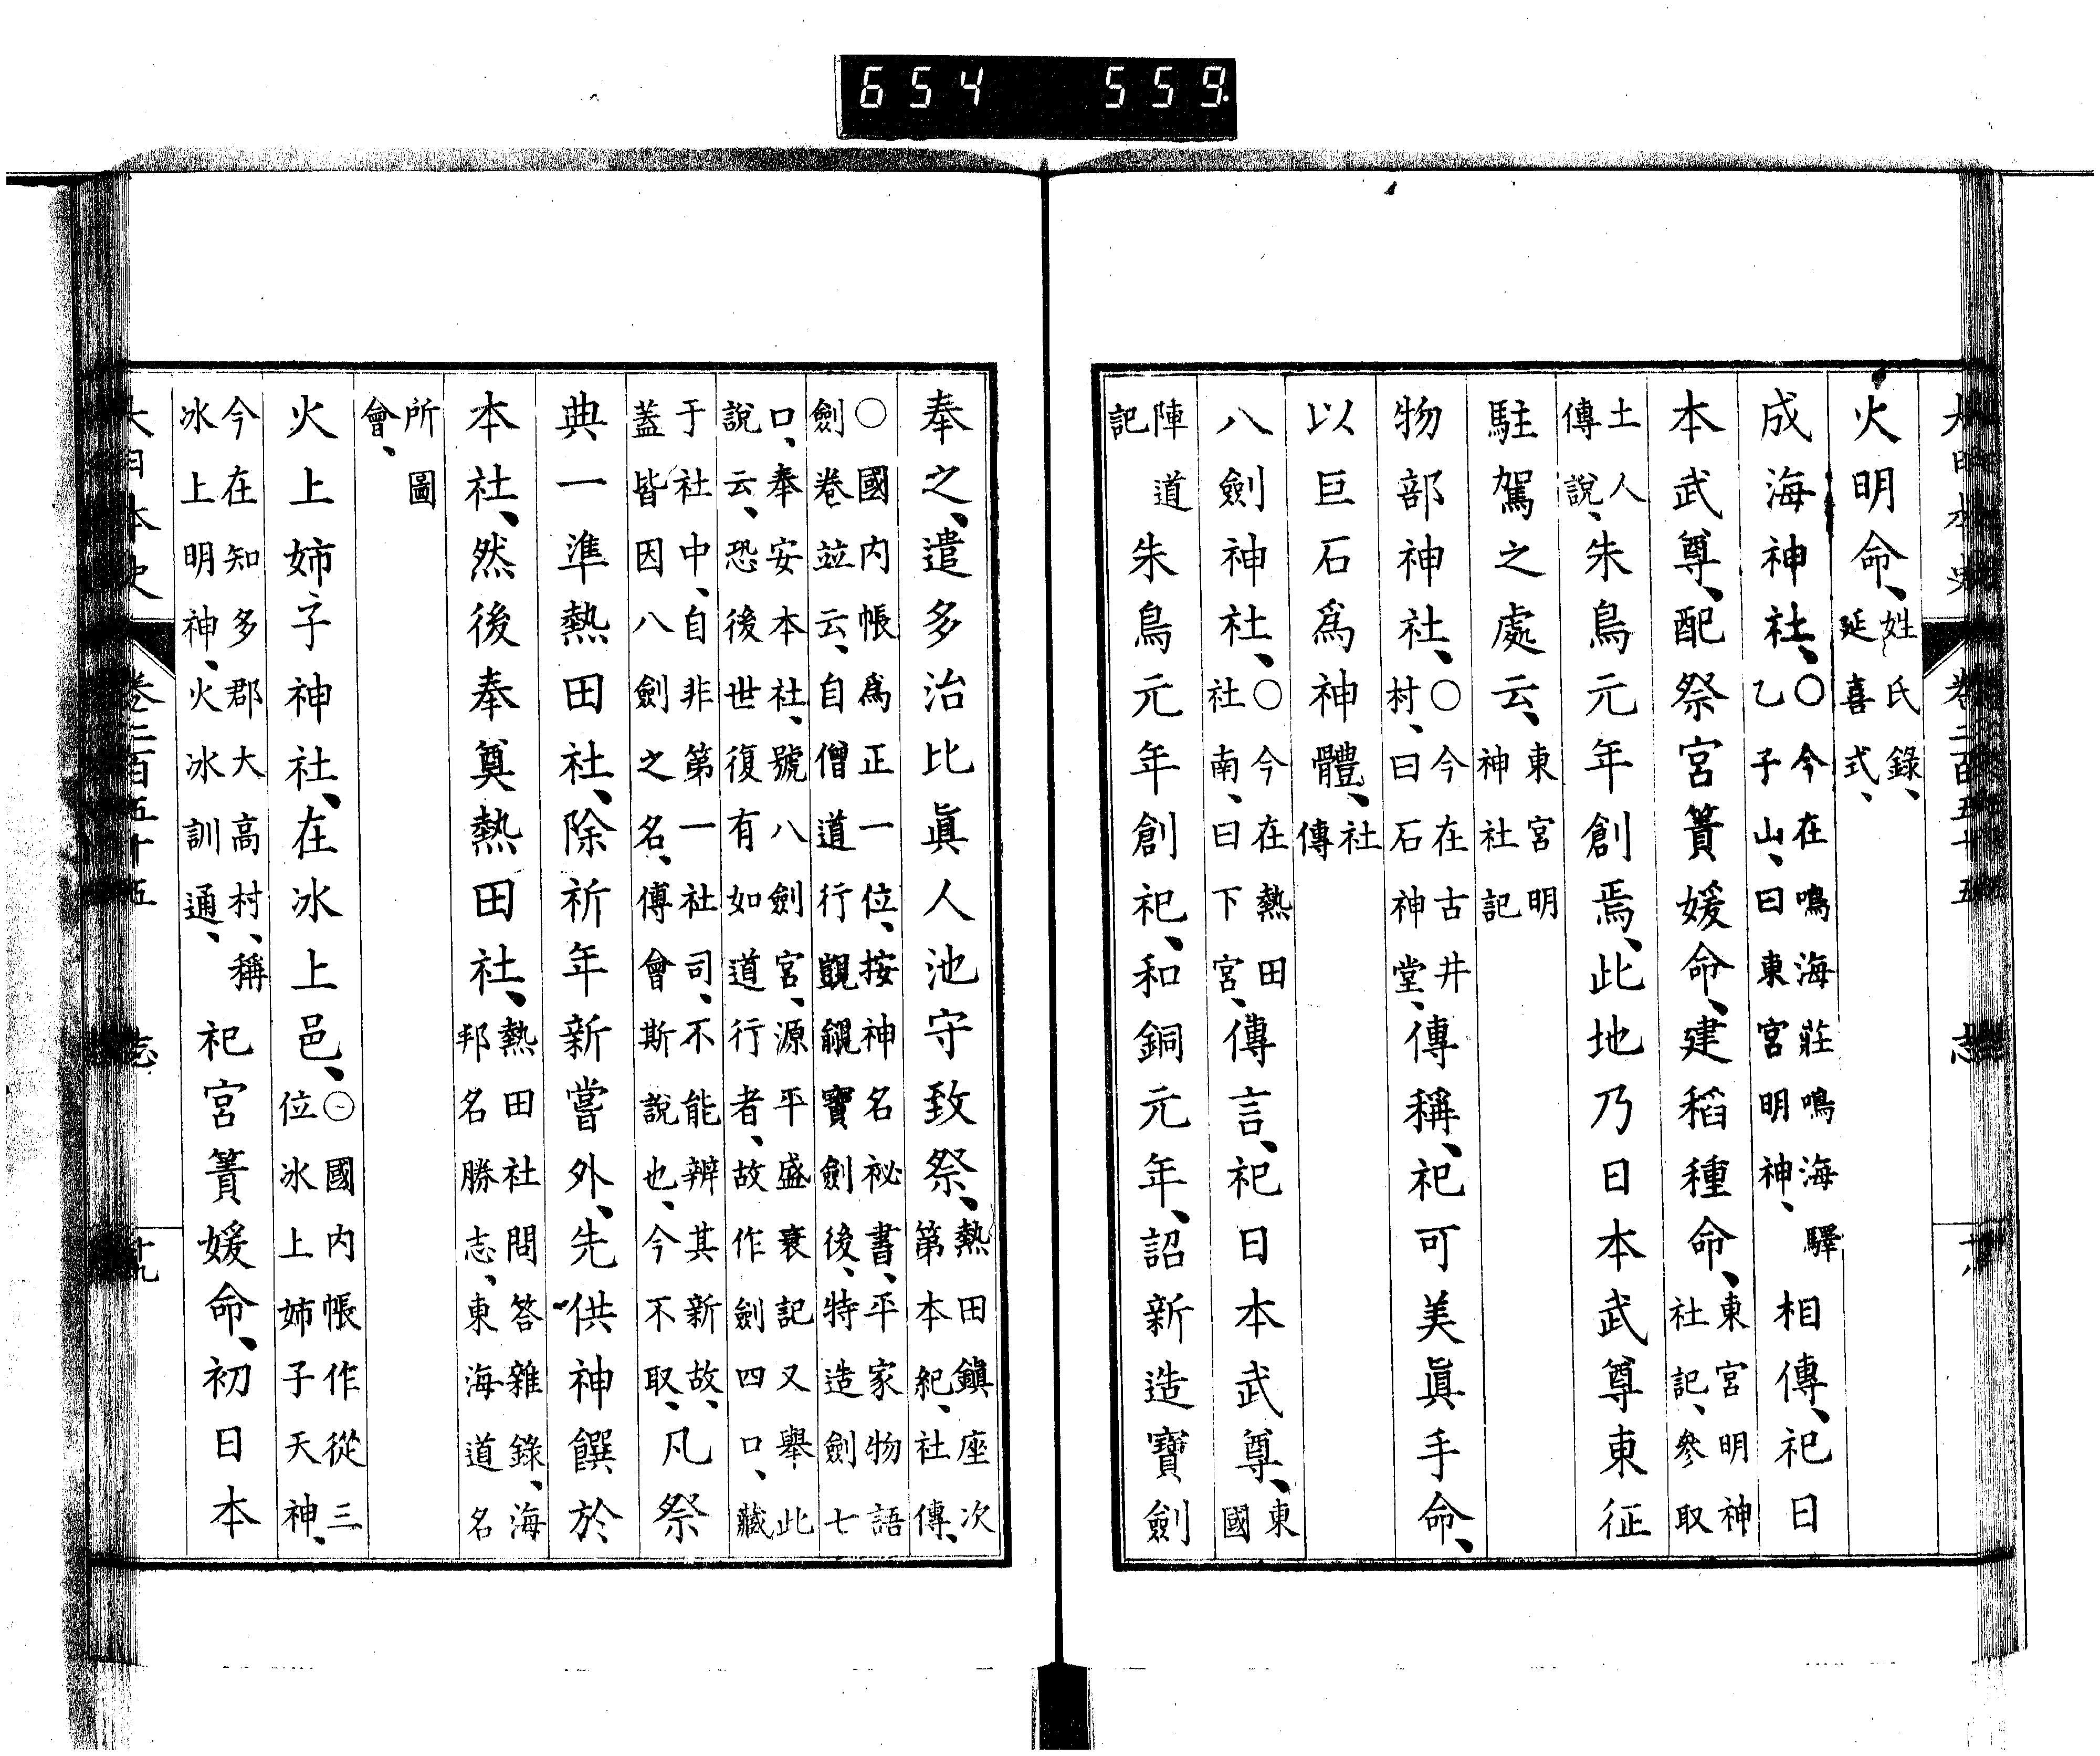 654 559.
大日本史 卷二百五十五 志 十八
火明命、姓氏錄、延喜式、
成海神社、〇今在鳴海莊鳴海驛乙子山、曰東宮明神、相傳、祀日
本武尊、配祭宮簀媛命、建稻種命、東宮明神社記、參取
土人傳說、朱鳥元年創焉、此地乃日本武尊東征
駐駕之處云、東宮明神社記
物部神社、〇今在古井村、曰石神堂、傳稱、祀可美眞手命、
以巨石爲神體、社傳
八劍神社、〇今在熱田社南、曰下宮、傳言、祀日本武尊、東國
陣道記朱鳥元年創祀、和銅元年、詔新造寶劍
奉之、遣多治比眞人池守致祭、熱田鎭座次第本紀、社傳、
〇國內帳爲正一位、按神名祕書、平家物語劍卷竝云、自僧道行覬覦寶劍後、特造劍七
口、奉安本社、號八劍宮、源平盛衰記又舉此說云、恐後世復有如道行者、故作劍四口、藏
于社中、自非第一社司、不能辨其新故、蓋皆因八劍之名、傅會斯說也、今不取、凡祭
典一準熱田社、除祈年新嘗外、先供神饌於
本社、然後奉奠熱田社、熱田社問答雜錄、海邦名勝志、東海道名
所圖會、
火上姉子神社、在氷上邑、〇國內帳作從三位氷上姉子天神、
今在知多郡大高村、稱氷上明神、火氷訓通、祀宮簀媛命、初日本
大日本史 卷二百五十五 志 十九